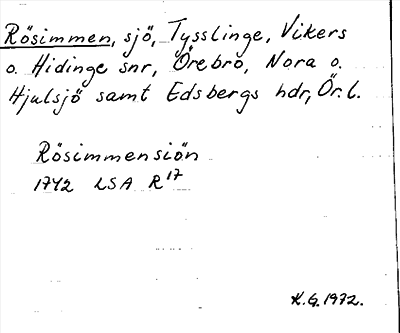 Rösimmen, sjö, Tysslinge, Vikers
o. Hidinge snr, Örebro, Nora o.
Hjulsjö samt Edsbergs hdr, Ör. l.
Rösimmensiön
1742 LSA R 17
K.G. 1972.